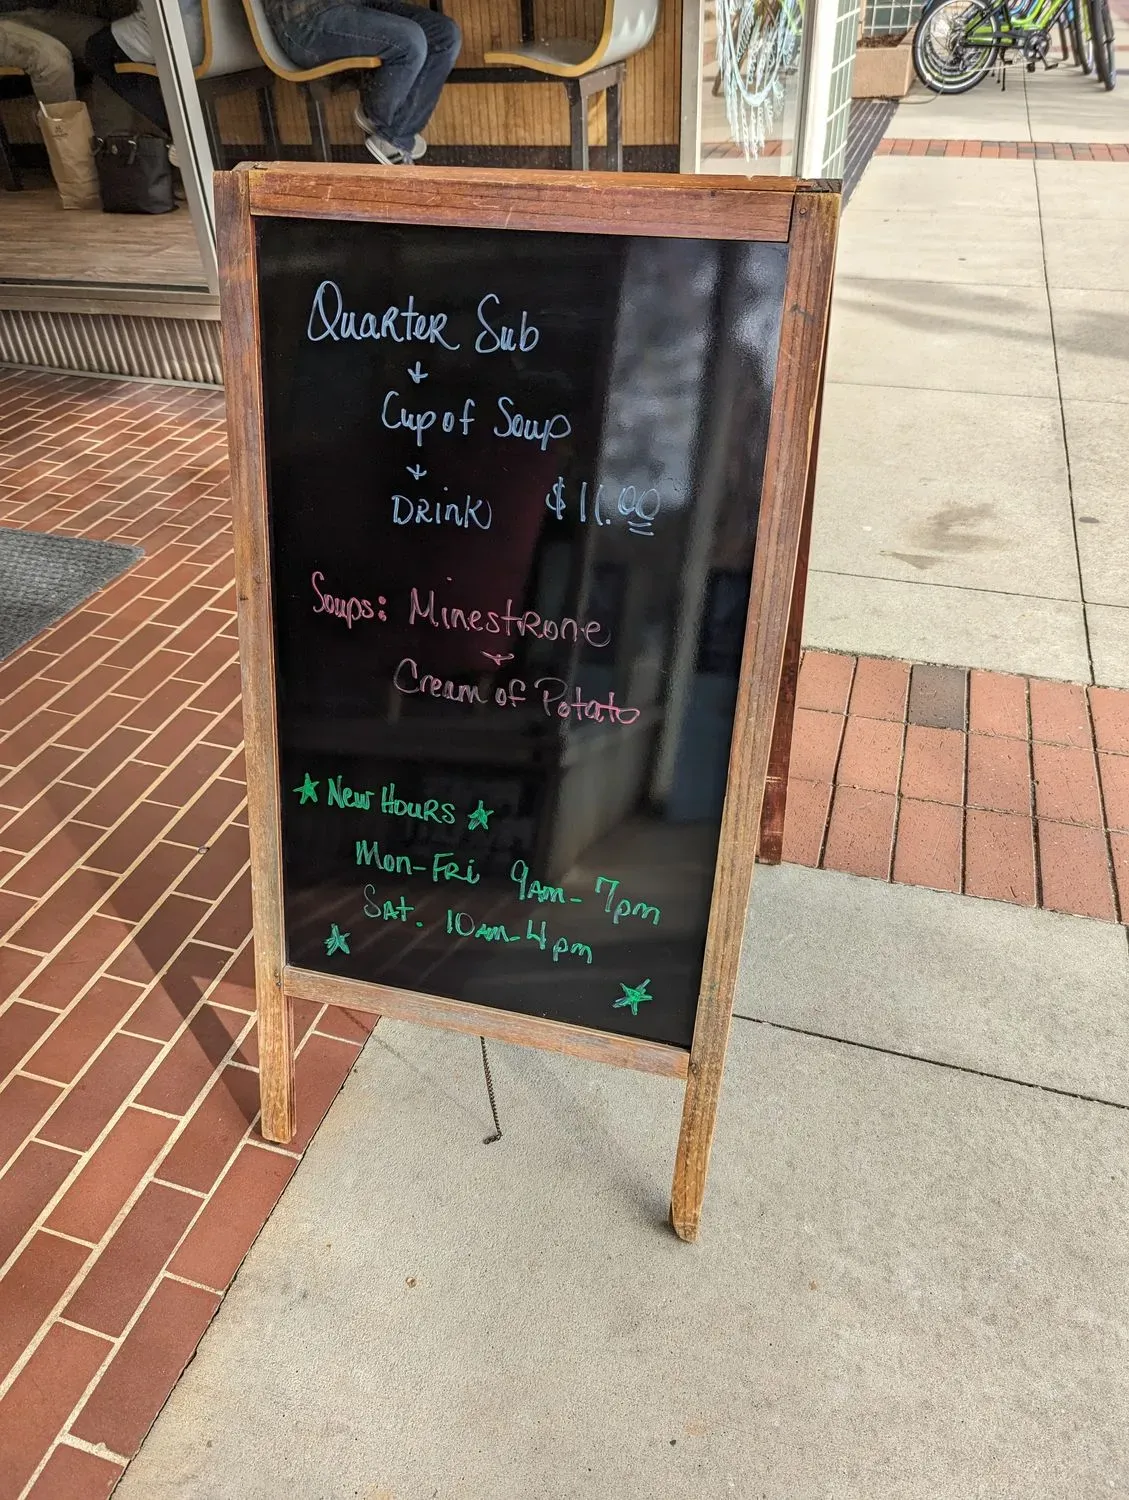 Quarter Sub
+
Cup of Soup
+
Drink $11.00
Soups: Minestrone
~
Cream of Potato
★ New Hours ★
Mon-Fri 9am-7pm
Sat. 10am-4pm